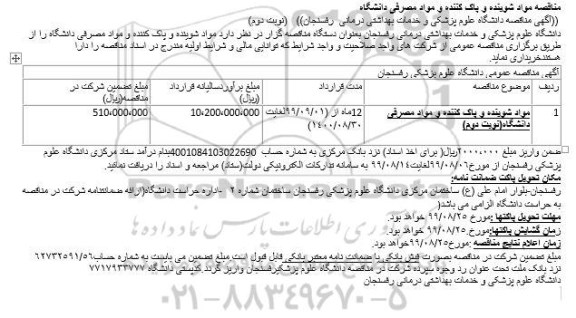 مناقصه مواد شوینده و پاک کننده و مواد مصرفی دانشگاه
((آگهی مناقصه دانشگاه علوم پزشکی و خدمات بهداشتی درمانی رفسنجان)) (نوبت دوم)
دانشگاه علوم پزشکی و خدمات بهداشتی درمانی رفسنجان بعنوان دستگاه مناقصه گزار در نظر دارد مواد شوینده و پاک کننده و مواد مصرفی دانشگاه را از
طریق برگزاری مناقصه عمومی از شرکت های واجد صلاحیت و واجد شرایط که توانایی مالی و شرایط اولیه مندرج در اسناد مناقصه را دارا
هستندخریداری نماید.
آگهی مناقصه عمومی دانشگاه علوم پزشکی رفسنجان
ردیف موضوع مناقصه مدت قرارداد مبلغ برآوردسالیانه قرارداد (ریال) مبلغ تضمین شرکت در مناقصه(ریال)
1 مواد شوینده و پاک کننده و مواد مصرفی دانشگاه(نوبت دوم) 12ماه از (۹۹/۰۹/۰۱لغایت ۱۴۰۰/۰۸/۳۰) 10،200،000،000 510،000،000
ضمن واریز مبلغ ۲۰۰۰،۰۰۰ریال( برای اخذ اسناد) نزد بانک مرکزی به شماره حساب 4001084103022690بنام درآمد ستاد مرکزی دانشگاه علوم
پزشکی رفسنجان از مورخ۹۹/۰۸/۰۶لغایت۹۹/۰۸/۱۴ به سامانه تدارکات الکترونیکی دولت(ستاد) مراجعه و اسناد را دریافت نمائید.
مکان تحویل پاکت ضمانت نامه:
رفسنجان-بلوار امام علی (ع) ساختمان مرکزی دانشگاه علوم پزشکی رفسنجان ساختمان شماره ۲ -اداره حراست دانشگاه(ارائه ضمانتنامه شرکت در مناقصه
به حراست دانشگاه الزامی می باشد)
مهلت تحویل پاکتها :مورخ ۹۹/۰۸/۲۵ خواهد بود.
زمان گشایش پاکتها:مورخ ۹۹/۰۸/۲۵ خواهد بود.
زمان اعلام نتایج مناقصه :مورخ۹۹/۰۸/۲۵ خواهد بود.
مبلغ تضمین شرکت در مناقصه بصورت فیش بانکی یا ضمانت نامه معتبر بانکی قابل قبول است مبلغ تضمین می بایست به شماره حساب۶۲۷۳۲۵۹۱/۵۶
نزد بانک ملت تحت عنوان رد وجوه سپرده شرکت در مناقصه دانشگاه علوم پزشکیرفسنجان واریز گردد.کدپستی دانشگاه ۷۷۱۷۹۳۳۷۷۷
دانشگاه علوم پزشکی و خدمات بهداشتی درمانی رفسنجان
۰۲۱-۸۸۳۴۹۶۷۰-۵